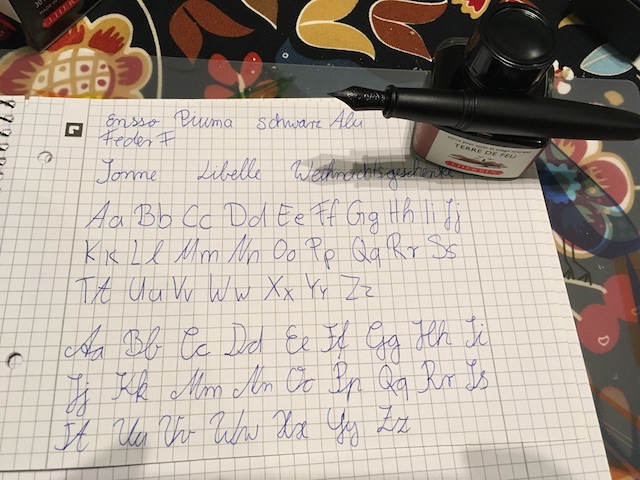 TERRE DE FEU
J. HERBIN
Ensso Piuma schwarz Alu
Feder F
Tonne Libelle Weihnachtsgeschenke
Aa Bb Cc Dd Ee Ff Gg Hh Ii Jj
Kk Ll Mm Nn Oo Pp Qq Rr Ss
Tt Uu Vv Ww Xx Yy Zz
Aa Bb Cc Dd Ee Ff Gg Hh Ii
Jj Kk Mm Nn Oo Pp Qq Rr Ss
Tt Uu Vv Ww Xx Yy Zz